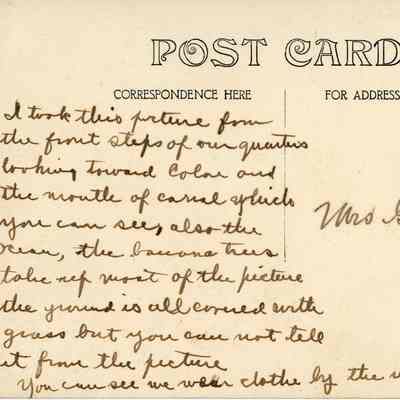 POST CARD
CORRESPONDENCE HERE
FOR ADDRESS
I took this picture from
the front steps of our quarters
looking toward Colon and
the mouth of canal which
you can see, also the
ocean, the banana trees
take up most of the picture
the ground is all covered with
grass but you can not tell
it from the picture
You can see we wear clothe by the
Mrs